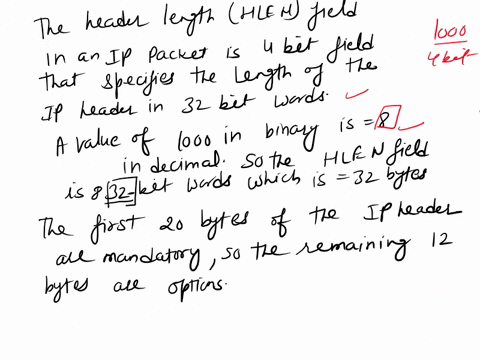 The header length (HLEN) field
in an IP Packet is 4 bit field
that specifies the length of the
IP header in 32 bit words.
A value of 1000 in binary is = 8
in decimal. So the HLEN field
is 8 32-bit words which is = 32 bytes
The first 20 bytes of the IP header
are mandatory, so the remaining 12
bytes are options.
1000
4 bit